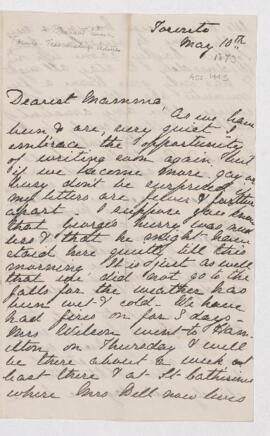 Toronto
May 10th
1893
Dearest Mamma,
As we have
been & are, very quiet I
embrace the opportunity
of writing soon again but
if we become more gay or
busy don't be surprised if
my letters are fewer & further
apart. I suppose you know
that George's hurry was
& that he might have
staid here quietly till this
morning. It is just as well
that we did not go to the
falls for the weather has
been wet & cold. We have
had fires on for 3 days -
Mrs Wilson went to Ham
ilton on Thursday & will
be there about a week or
last there & at St Catharines
where Mrs Bell now lives